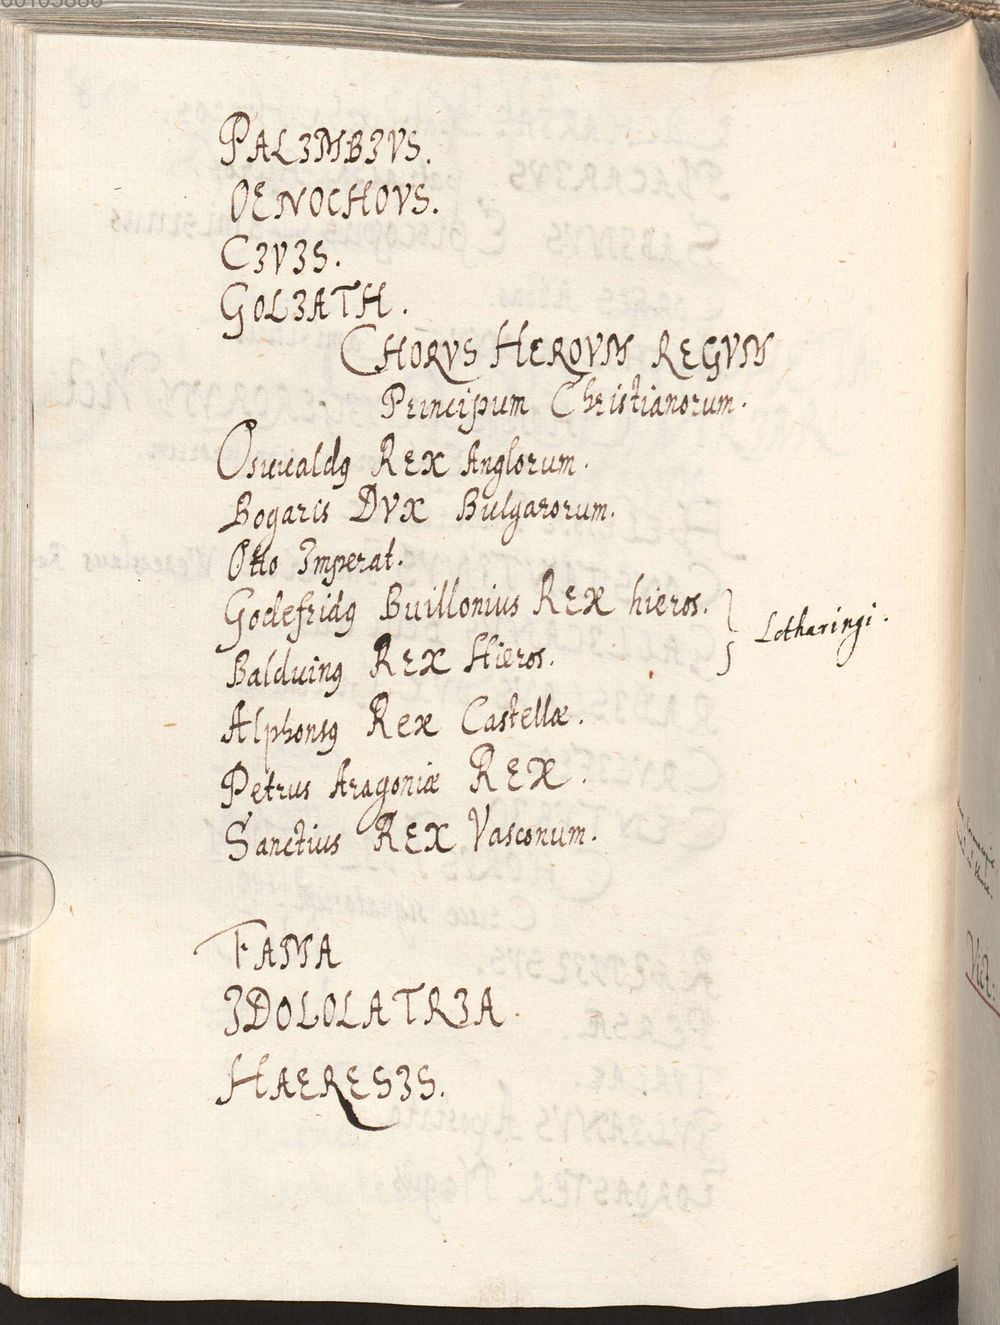 PALIMBIVS.
OENOCHOVS.
CIVIS.
GOLIATH.
CHORVS HEROVM REGVM
Principum Christianorum.
Oswaldꝰ REX Anglorum.
Bogaris DVX Bulgarorum.
Otto Imperat.
Godefridꝰ Buillonius REX hieros. } Lotharingi.
Balduinꝰ REX Hieros.
Alphonsꝰ Rex Castellæ.
Petrus Aragoniæ REX.
Sanctius REX Vasconum.
FAMA
IDOLOLATRIA.
HAERESIS.